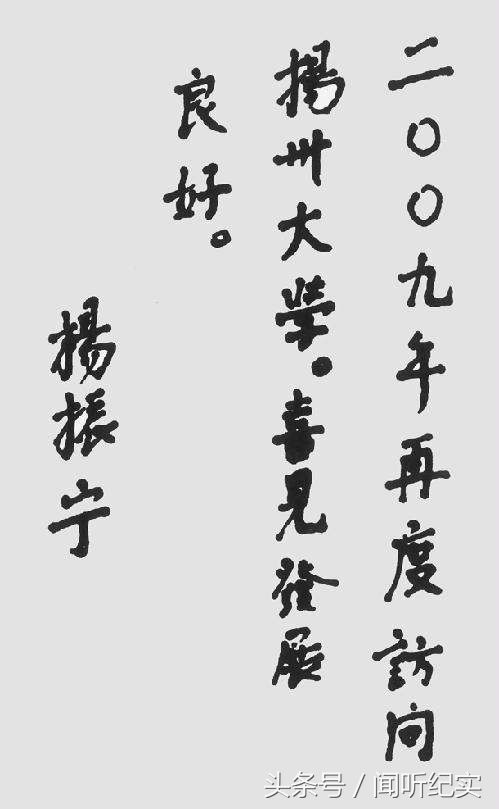 二〇〇九年再度訪问
揚州大學。喜見發展
良好。
楊振宁
头条号 / 闻听纪实